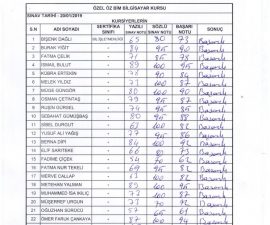 ÖZEL ÖZ BİM BİLGİSAYAR KURSU
SINAV TARİHİ : 20/01/2019
KURSİYERLERİN
S.N ADI SOYADI SERTİFİKA SINIFI YAZILI SINAV NOTU SÖZLÜ SINAV NOTU BAŞARI NOTU SONUÇ
1 DAĞLI BİLGİSAYAR 30 73 Başarılı
2 BURAK YİĞİT 84 95 90 Başarılı
3 FATMA ÇELİK 71 85 78 Başarılı
4 İSMAİL BULUT 100 95 Başarılı
5 KÜBRA ERTEKİN 78 90 84 Başarılı
6 MELEK YILDIZ 77 97 87 Başarılı
7 MÜGE GÜNGÖR 80 100 90 Başarılı
8 OSMAN ÇETİNTAŞ 95 Başarılı
9 RUŞEN GÜRSEL 74 95 85 Başarılı
10 SEBAHAT GÜMÜŞBAŞ 80 95 88 Başarılı
11 SİBEL DURGUT 100 Başarılı
12 YUSUF ALİ YAĞIŞ 86 95 Başarılı
13 BERNA DİRİ 84 100 92 Başarılı
14 ELİF SARITEKE 66 80 73 Başarılı
15 FADİME ÇİÇEK 54 70 62 Başarılı
16 FATMA NUR TEKELİ 69 95 82 Başarılı
17 MERVE CALLAP 100 Başarılı
18 METEHAN YALMAN 100 95 Başarılı
19 MUHAMMED İSA KILIÇ 100 87 Başarılı
20 MÜŞERREF URGUN 100 87 Başarılı
21 OĞUZHAN SÜRÜCÜ 57 65 61 Başarılı
22 ÖMER FARUK ÇANKAYA 87 100 94 Başarılı